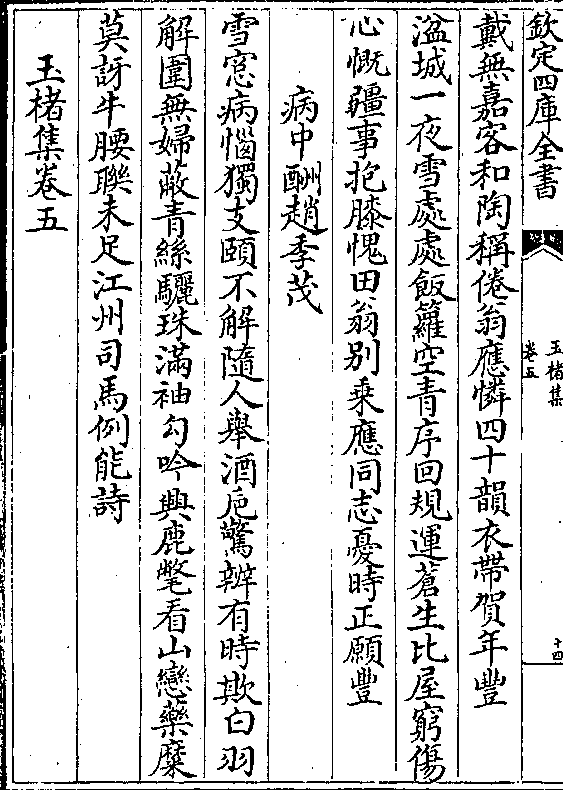 欽定四庫全書
玉楮集
卷五
十四
戴無嘉客和陶稱倦翁應憐四十韻衣帶賀年豐
湓城一夜雪處處飯籮空青序回規運蒼生比屋窮傷
心慨疆事抱膝愧田翁别乗應同志憂時正願豐
病中酬趙季茂
雪窓病惱獨支頤不解隨人舉酒巵驚辨有時欺白羽
解圍無婦蔽青絲驪珠滿袖勾吟興鹿氅看山戀藥糜
莫訝牛腰聨未足江州司馬例能詩
玉楮集卷五